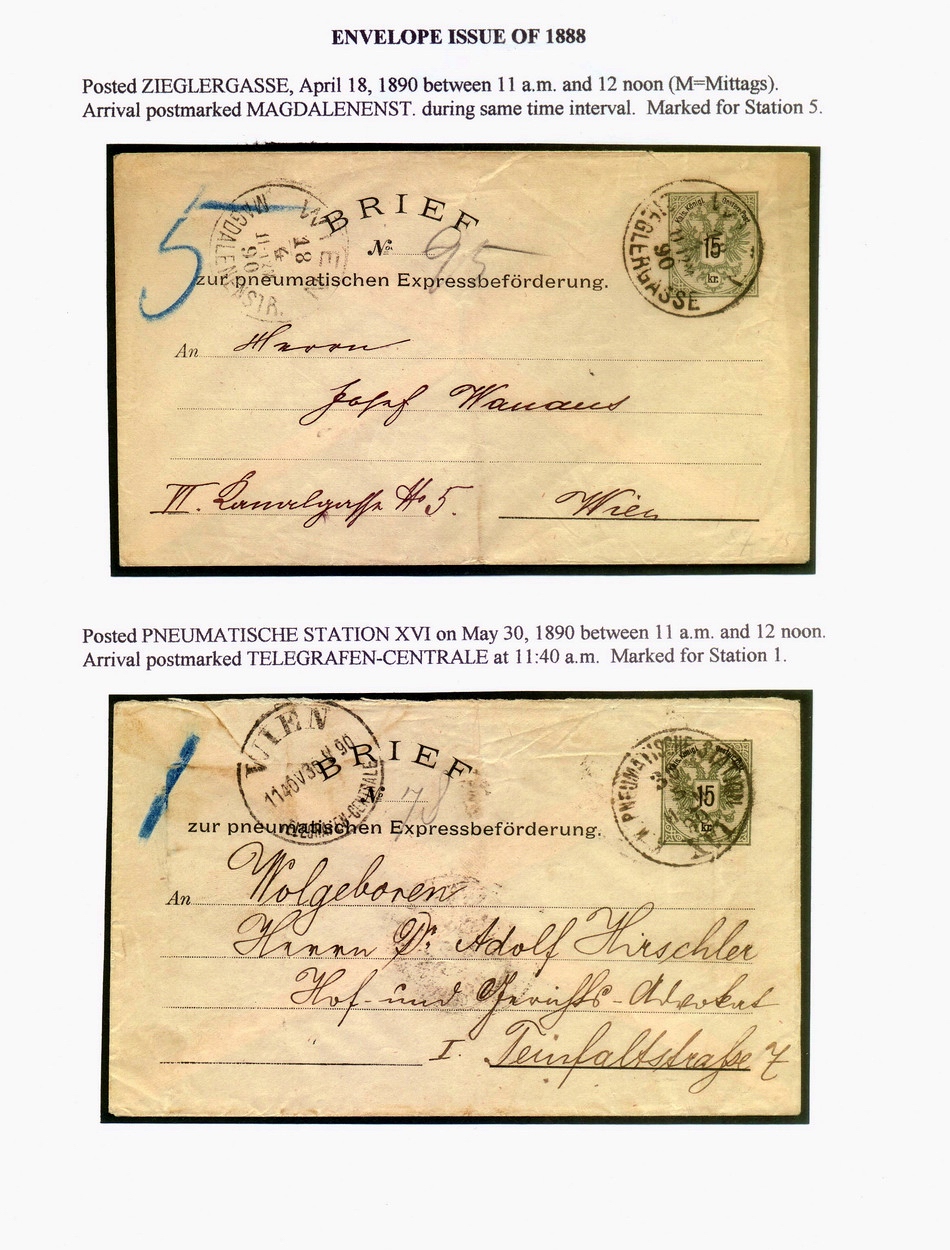 ENVELOPE ISSUE OF 1888
Posted ZIEGLERGASSE, April 18, 1890 between 11 a.m. and 12 noon (M=Mittags).
Arrival postmarked MAGDALENENST. during same time interval. Marked for Station 5.
5
WIEN
18
4
90
MAGDALENENSTR.
BRIEF
No. 95
zur pneumatischen Expressbeförderung.
ZIEGLERGASSE
90
15
kr.
An Herrn
Josef
VI. Kanalgasse No 5. Wien
Posted PNEUMATISCHE STATION XVI on May 30, 1890 between 11 a.m. and 12 noon.
Arrival postmarked TELEGRAFEN-CENTRALE at 11:40 a.m. Marked for Station 1.
1
WIEN
1140V30 V 90
TELEGRAFEN-CENTRALE
BRIEF
No. 78
zur pneumatischen Expressbeförderung.
K.K. PNEUMATISCHE STATION
15
kr.
An Wolgeboren
Herrn Dr. Adolf Hirschler
Hof- und Gerichts-Advokat
I. Teinfaltstraße 7